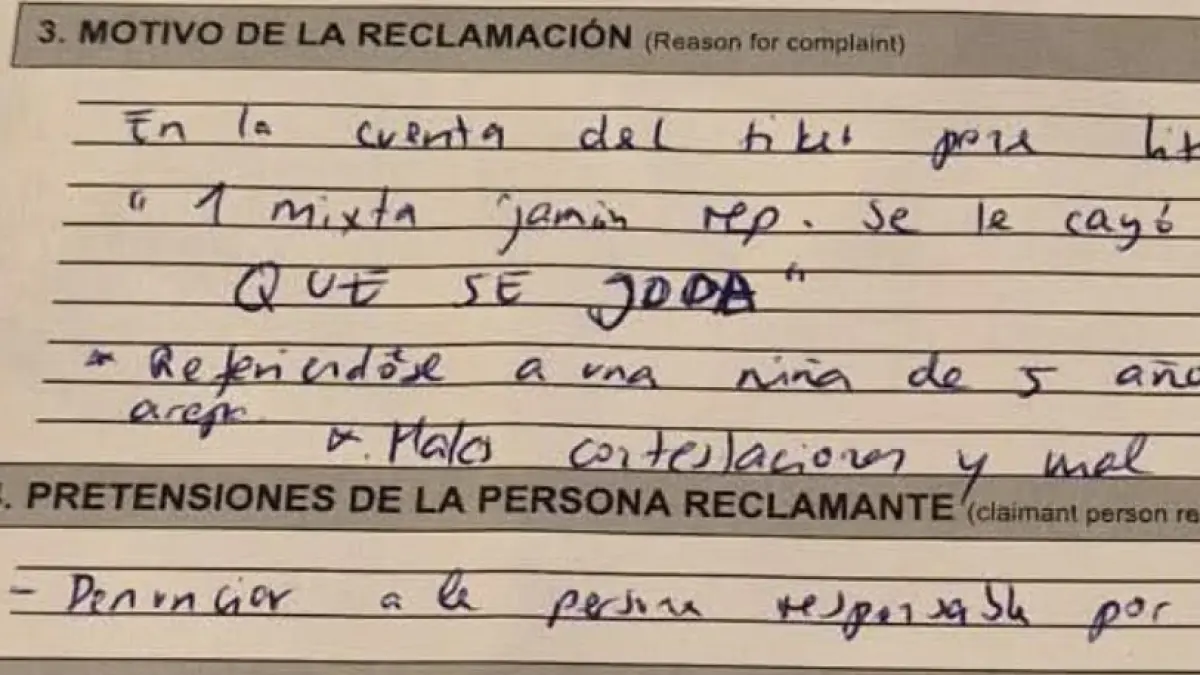 3. MOTIVO DE LA RECLAMACIÓN (Reason for complaint)
En la cuenta del tiket pone lit
" 1 mixta jamón rep. Se le cayó
QUE SE JODA"
* Referiendóse a una niña de 5 año
* Malas contestaciones y mal
. PRETENSIONES DE LA PERSONA RECLAMANTE (claimant person re
- Denunciar a la persona responsable por